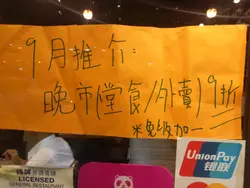 9月推介:
晚市堂食/外賣/9折
※免服加一
LICENSED
GENERAL RESTAURANT
UnionPay
银联